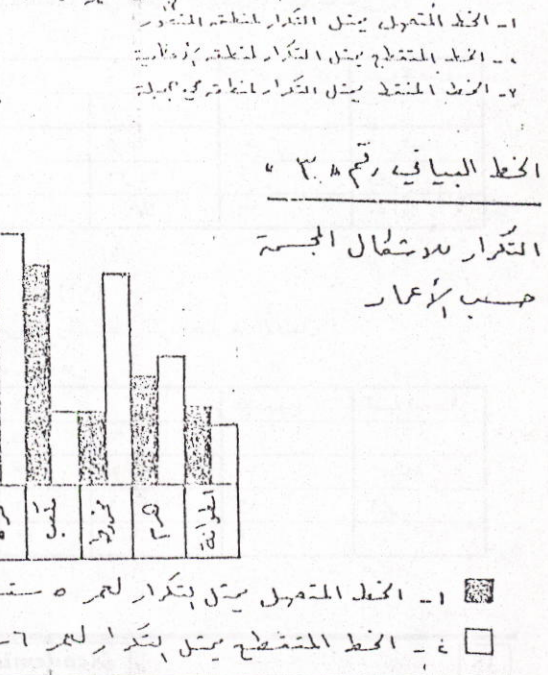 ١- الخط المتصل يمثل التكرار لمنطقة المنصور
٢- الخط المتقطع يمثل التكرار لمنطقة
٣- الخط المنقط يمثل التكرار لمنطقة
الخط البياني رقم « ٣ »
التكرار للاشكال المجسمة
حسب الأعمار
مكعب
مخروط
هرم
اسطوانة
١- الخط المتصل يمثل التكرار لعمر ٥
٢- الخط المتقطع يمثل التكرار لعمر ٦